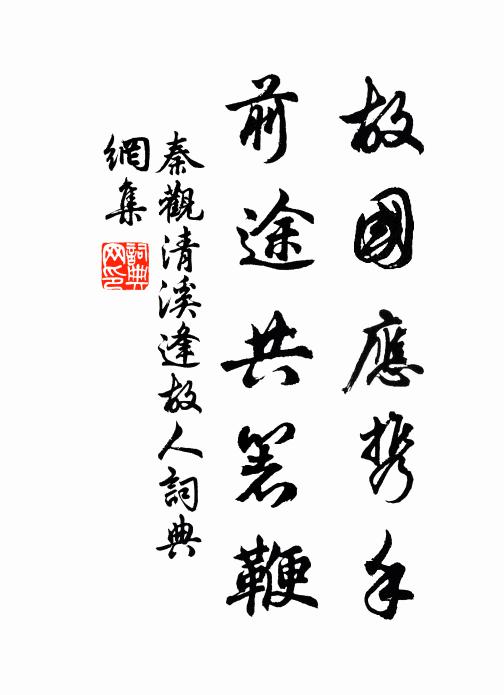 故國應携手
前途共著鞭
秦觀清溪逢故人詞典
網集
詞典
网印